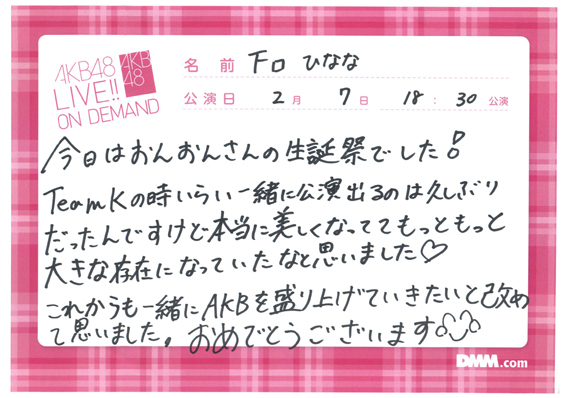 AKB48
LIVE!!
ON DEMAND
AKB
48
名前 下口 ひなな
公演日 2月 7日 18:30公演
今日はおんおんさんの生誕祭でした!
TeamKの時いらい一緒に公演出るのは久しぶり
だったんですけど本当に美しくなっててもっともっと
大きな存在になっていたなと思いました♡
これからも一緒にAKBを盛り上げていきたいと改め
て思いました。おめでとうございます
DMM.com